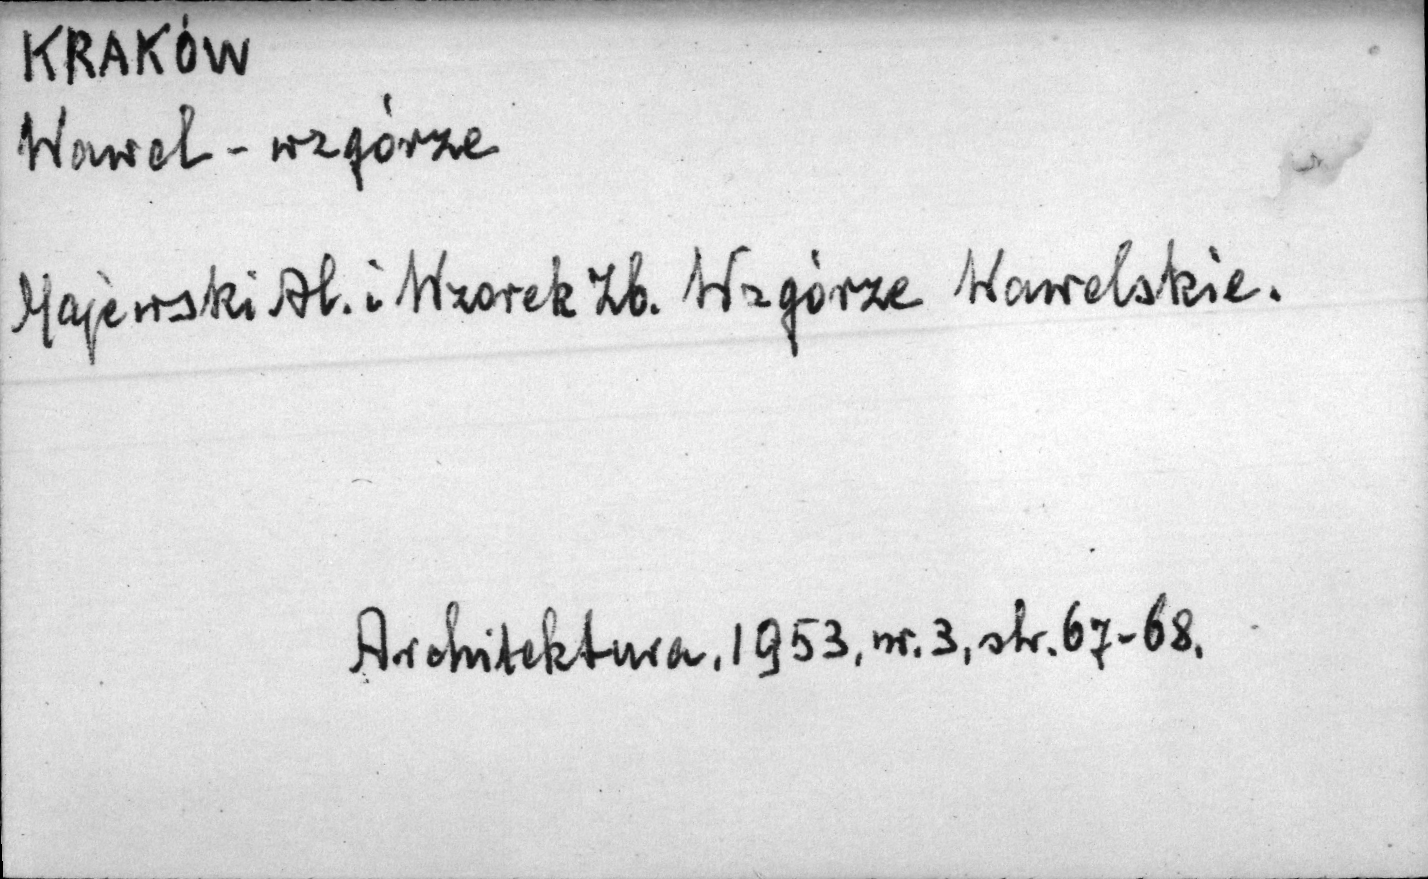 KRAKÓW
Wawel - wzgórze
Majewski Al. i Wzorek Zb. Wzgórze Wawelskie.
Architektura. 1953, nr. 3, str. 67-68.